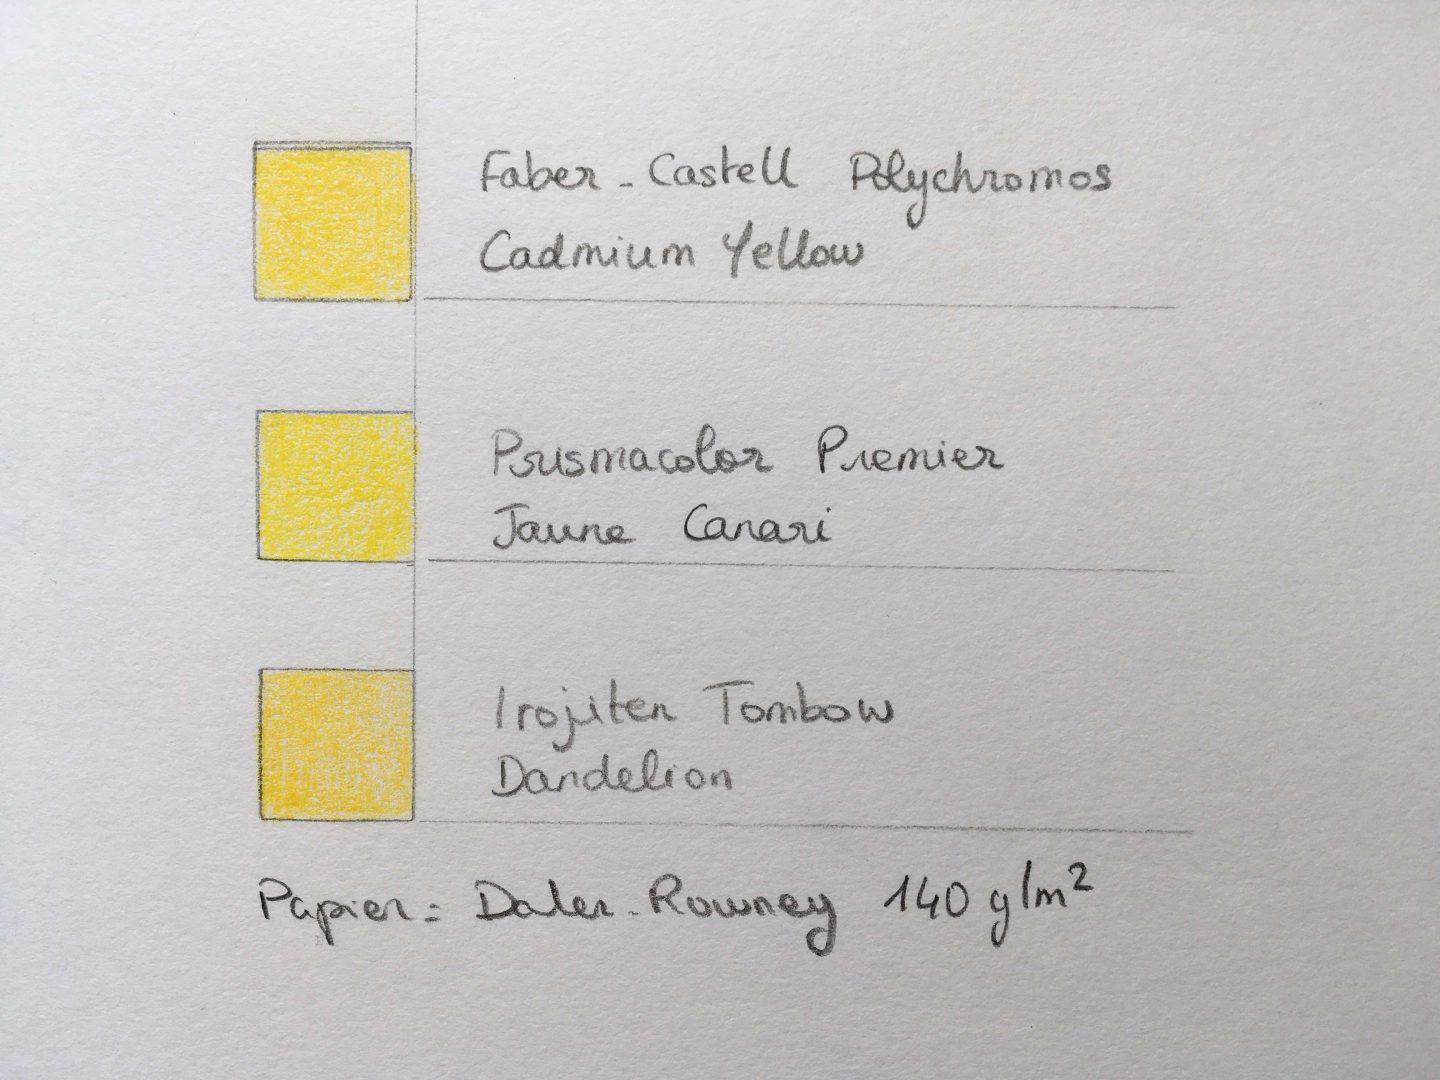 Faber-Castell Polychromos
Cadmium Yellow
Prismacolor Premier
Jaune Canari
Irojiten Tombow
Dandelion
Papier: Daler-Rowney 140 g/m²